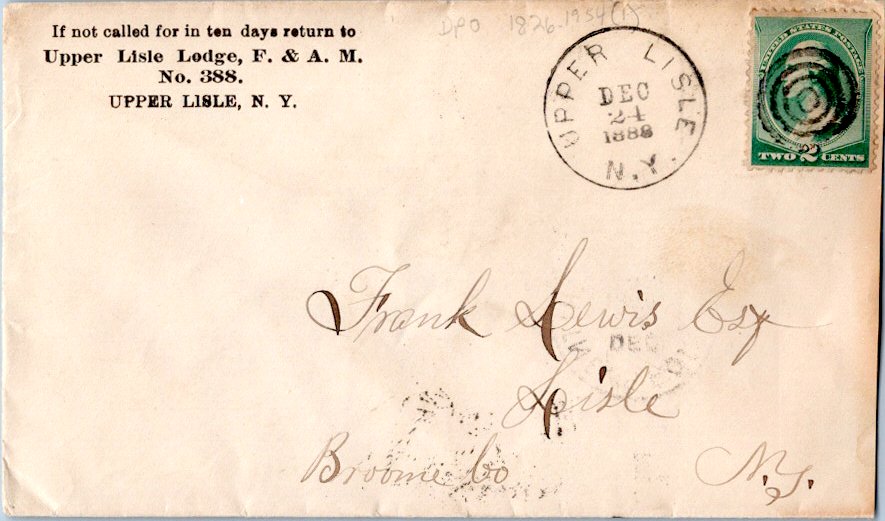 If not called for in ten days return to
Upper Lisle Lodge, F. & A. M.
No. 388.
UPPER LISLE, N. Y.
DPO 1826-1954 (1)
UPPER LISLE
DEC
24
1888
N.Y.
UNITED STATES POSTAGE
TWO 2 CENTS
Frank Lewis Esq
DEC
Lisle
Broome Co N.Y.